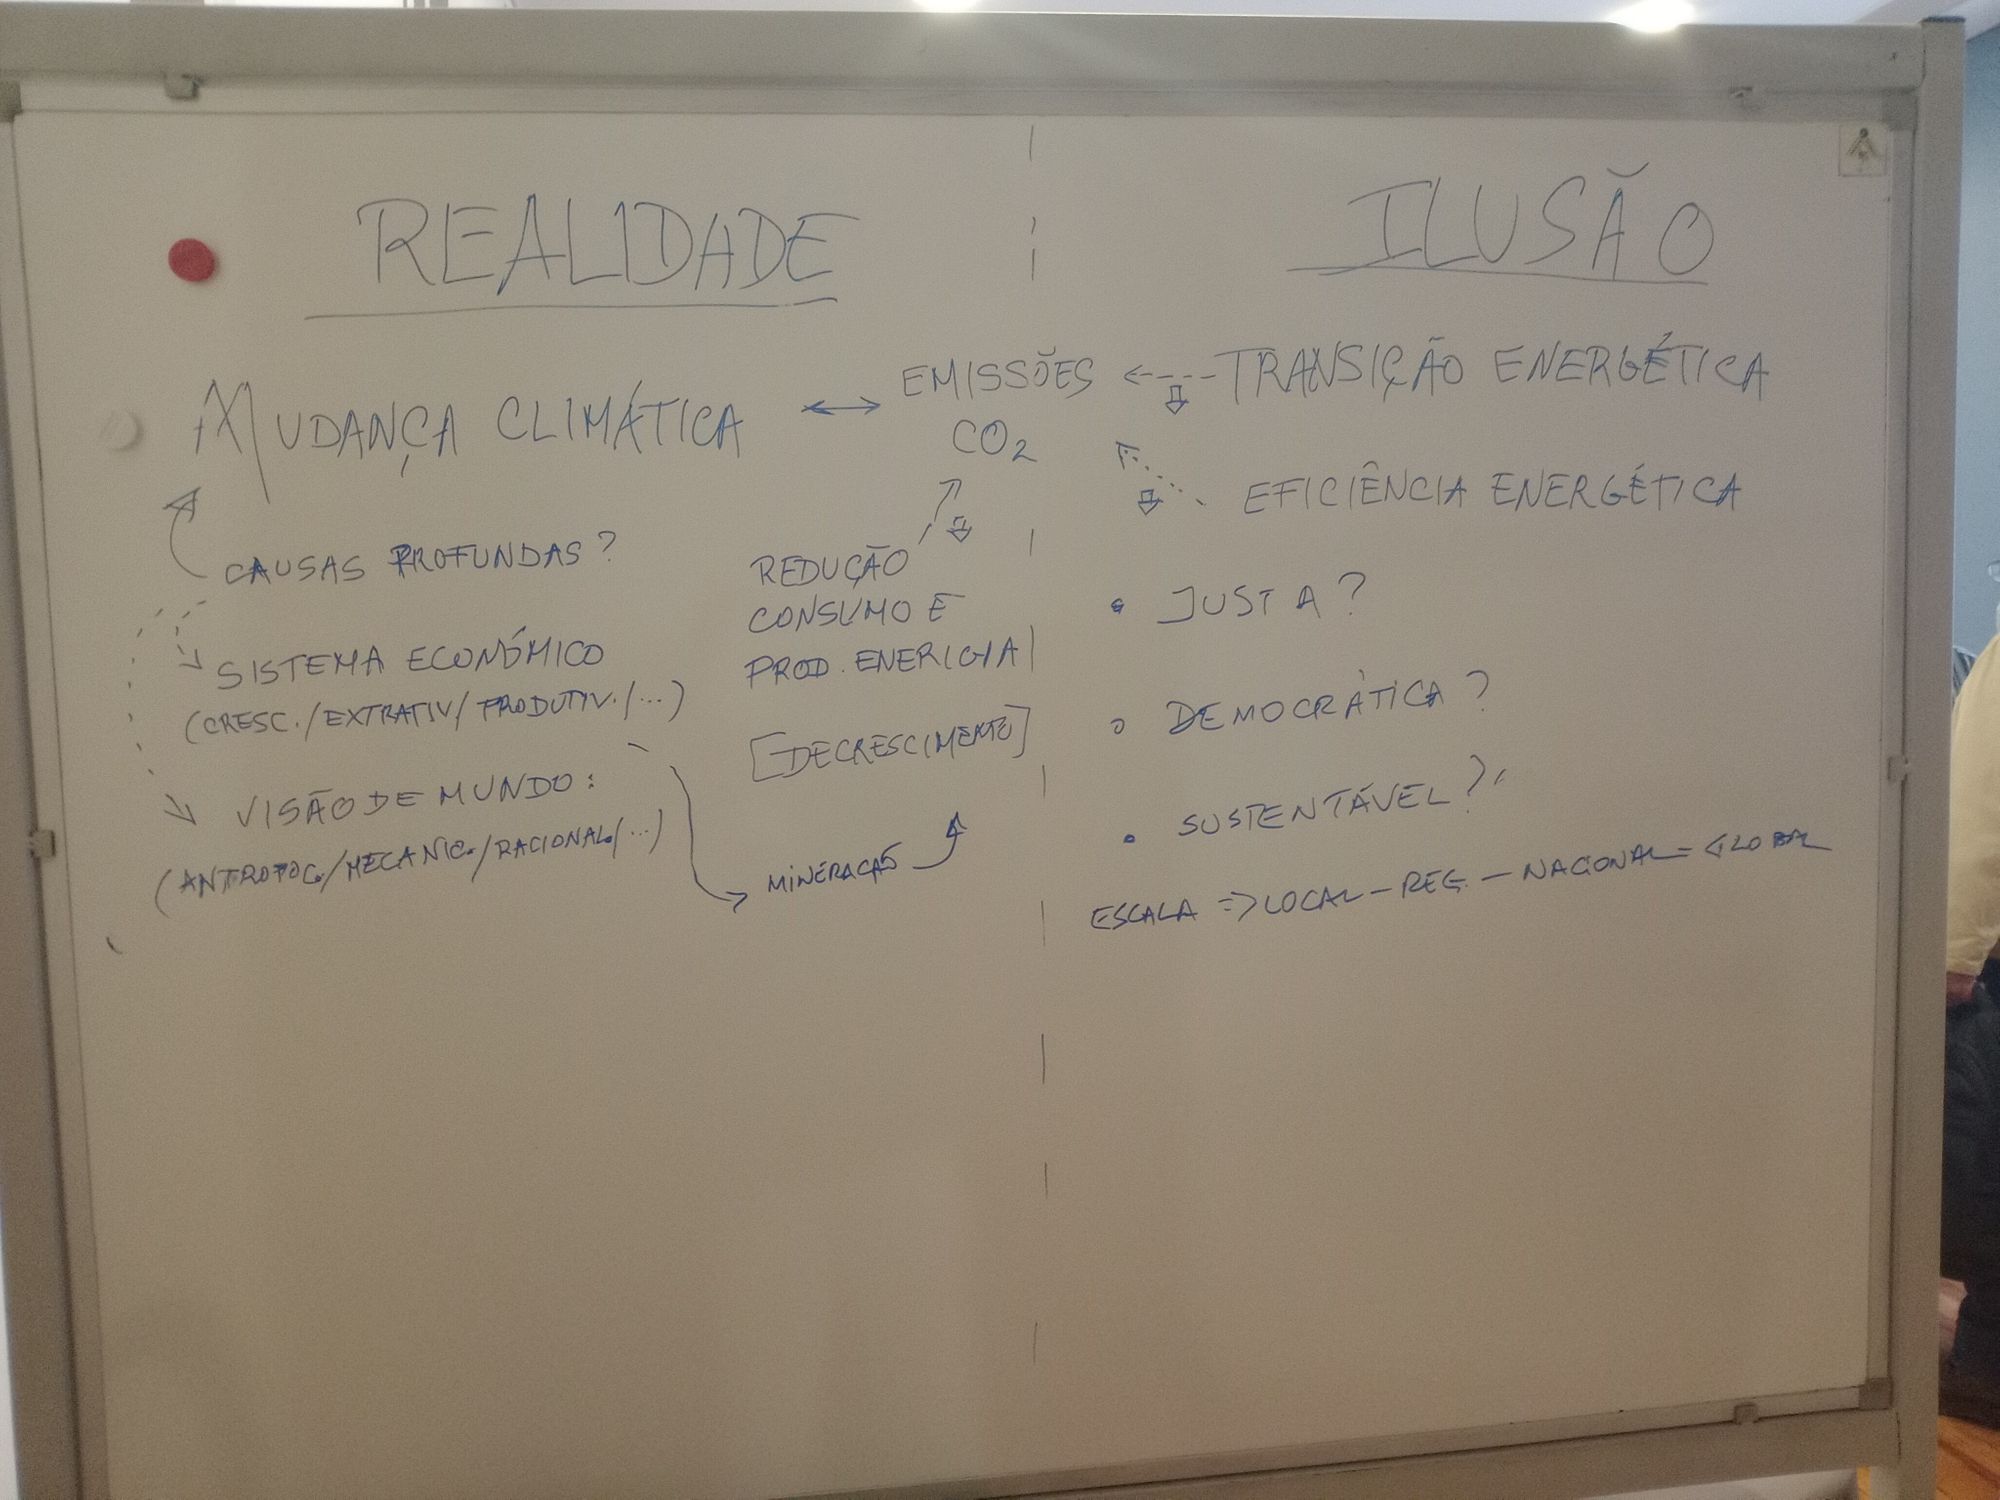 REALIDADE
ILUSÃO
MUDANÇA CLIMÁTICA
EMISSÕES
CO2
TRANSIÇÃO ENERGÉTICA
EFICIÊNCIA ENERGÉTICA
CAUSAS PROFUNDAS?
SISTEMA ECONÓMICO
(CRESC./EXTRATIV/PRODUTIV./...)
VISÃO DE MUNDO:
(ANTROPOC./MECANIC./RACIONAL./...)
REDUÇÃO
CONSUMO E
PROD. ENERGIA
[DECRESCIMENTO]
MINERAÇÃO
• JUSTA?
• DEMOCRÁTICA?
• SUSTENTÁVEL?
ESCALA => LOCAL - REG. - NACIONAL = GLOBAL